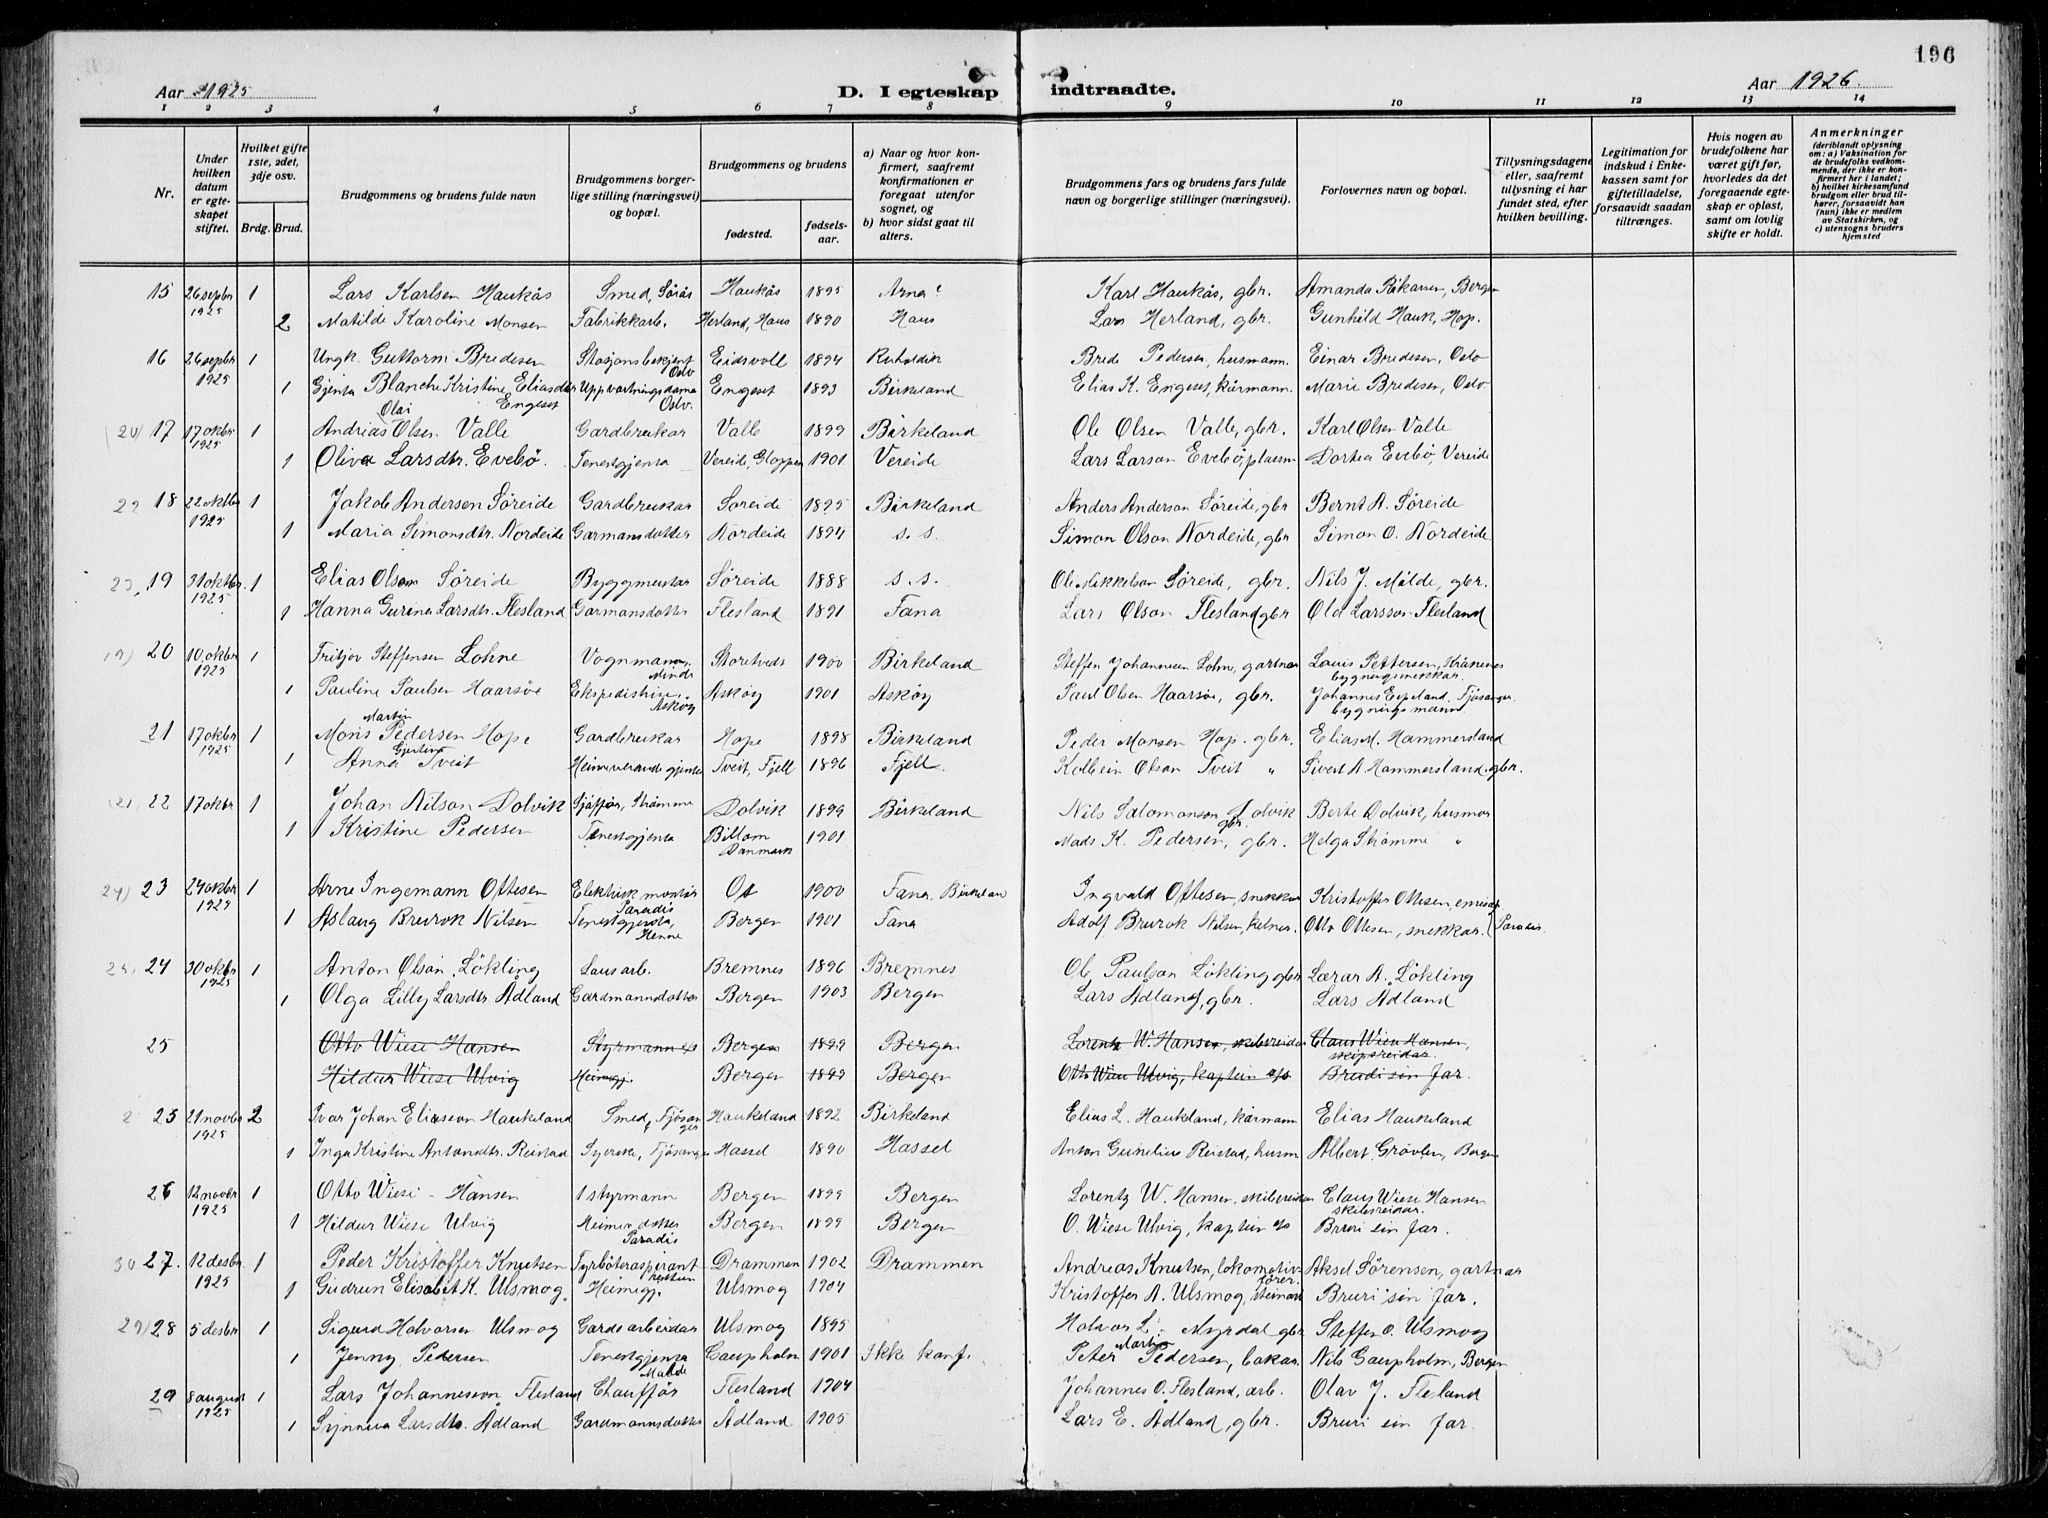 196
Aar 1925 D. I egteskap indtraadte. Aar 1926.
1 2 3 4 5 6 7 8 9 10 11 12 13 14
Nr.
Under hvilken datum er egteskapet stiftet.
Hvilket gifte 1ste, 2det, 3dje osv.
Brdg. Brud.
Brudgommens og brudens fulde navn
Brudgommens borgerlige stilling (næringsvei) og bopæl.
Brudgommens og brudens
fødested.
fødselsaar.
a) Naar og hvor konfirmert, saafremt konfirmationen er foregaat utenfor sognet, og
b) hvor sidst gaat til alters.
Brudgommens fars og brudens fars fulde navn og borgerlige stillinger (næringsvei).
Forlovernes navn og bopæl.
Tillysningsdagene eller, saafremt tillysning ei har fundet sted, efter hvilken bevilling.
Legitimation for indskud i Enkekassen samt for giftetilladelse, forsaavidt saadan tiltrænges.
Hvis nogen av brudefolkene har været gift før, hvorledes da det foregaaende egteskap er opløst, samt om lovlig skifte er holdt.
Anmerkninger (deriblandt oplysning om: a) Vaksination for de brudefolks vedkommende, der ikke er konfirmert her i landet; b) hvilket kirkesamfund brudgom eller brud tilhører, forsaavidt han (hun) ikke er medlem av Statskirken, og c) utensogns bruders hjemsted
15 26 septbr 1925 1 Lars Karlsen Haukås Smed, Sörås Haukås 1895 Arna Karl Haukås, gbr. Amanda Bergen
2 Matilde Karoline Monsen Fabrikkarb. Herland, Haus 1890 Haus Lars Herland, gbr. Gunhild Hauk, Hop.
16 26 septbr 1925 1 Ungk. Guttorm Bredesen Stasjonsbetjent Oslo Eidsvoll 1894 Brede Pedersen, husmann. Einar Bredesen, Oslo
1 Gjenta Blanche Kristine Eliasdtr Engeset Uppvartningsdame Oslo. Engeset 1893 Birkeland Elias K. Engeset, kårmann. Marie Bredesen, Oslo
(20) 17 17 oktbr 1925 1 Andrias Olai Olsen Valle Gardbrukar Valle 1899 Birkeland Ole Olsen Valle, gbr. Karl Olsen Valle
1 Oliva Larsdtr. Evebö. Tenestgjenta Vereide, Gloppen 1901 Vereide Lars Larson Evebö, plassm Dortea Evebö, Vereide
22 18 22 oktbr 1925 1 Jakob Andersen Söreide Gardbrukar Söreide 1895 Birkeland Anders Anderson Söreide, gbr Bernt A. Söreide
1 Maria Simonsdtr. Nordeide Garmansdotter Nordeide 1894 s. s. Simon Olson Nordeide, gbr Simon O. Nordeide
23, 19 31 oktbr. 1925 1 Elias Olson Söreide Byggmester Söreide 1888 s. s. Ole Mikkelson Söreide, gbr. Nils J. Milde, gbr.
1 Hanna Gurina Larsdtr. Flesland Garmansdotter Flesland 1891 Fana Lars Olson Flesland gbr Ola Larsson Flesland
19) 20 10 oktbr 1925 1 Fritjov Steffensen Lohne Vognmann, Minde Storetvedt 1900 Birkeland Steffen Johannesen Lohne, gartnar Louis Pettersen, Kråkenes bygningssnekkar.
1 Pauline Paulsen Haarsöe Ekspeditrise, Askøy Askøy 1901 Askøy Paul Olsen Haarsöe, gbr. Johannes Espeland, Fjösanger bygningsmann
21 17 oktbr 1925 1 Mons Martin Pedersen Hope Gardbrukar Hope 1898 Birkeland Peder Monsen Hop. gbr. Elias M. Hammersland
1 Anna Gjertina Tveit Heimeverande gjenta Tveit, Fjell 1896 Fjell. Kolbein Olson Tveit " Sivert A. Hammersland. gbr.
(21) 22 17 oktbr 1 Johan Nilson Dolvik Sjåför, Strömme Dolvik 1899 Birkeland Nils Salomonson Dolvik gbr. Berte Dolvik, husmor
1 Kristine Pedersen Tenestgjenta Billom Danmark 1901 Mads K. Pedersen, gbr. Helga Strömme "
24) 23 24 oktbr 1925 1 Arne Ingemann Ottesen Elektrisk montör Paradis Os 1900 Fana, Birkeland Ingvald Ottesen, snekkar Kristoffer Ottesen,
1 Aslaug Brurok Nilsen Tenestgjenta, Bergen 1901 Fana Adolf Brurok Nilsen, kelner. Otto Ottesen, snekkar. (Paradis.
25. 24 30 oktbr 1925 1 Anton Olson Lökling Lausarb. Bremnes 1896 Bremnes Ole Paulson Lökling gbr Lærar A. Lökling
1 Olga Lilly Larsdtr Ådland Gardmannsdotter Bergen 1903 Bergen Lars Ådland, gbr. Lars Ådland
25 Otto Wiese Hansen Styrmann Bergen 1899 Bergen. Lorentz W. Hansen, skibsreidar Claus Wiese Hansen, skipsreidar.
Hildur Wiese Ulvig Heimegj. Bergen 1899 Bergen Otto Wiese Ulvig, kaptein Brudi sin far.
2 25 21 novbr 1925 2 Ivar Johan Eliasson Haukeland Smed, Fjösanger Haukeland 1892 Birkeland Elias L. Haukeland, kårmann Elias Haukeland
1 Inga Kristine Antondtr. Reistad Syerske, Fjösanger Hassel 1890 Hassel Anton Gunelius Reistad, husm Albert Grövlen, Bergen
26 12 novbr 1925 1 Otto Wiese - Hansen 1 styrmann Bergen 1899 Bergen Lorentz W. Hansen. skibsreidar Claus Wiese Hansen skibsreidar.
1 Hildur Wiese Ulvig Heimedotter Paradis Bergen 1899 Bergen O. Wiese Ulvig, kaptein Bruri sin far.
30 27. 12 desbr. 1925 1 Peder Kristoffer Knutsen Fyrböteraspirant Drammen 1902 Drammen Andreas Knutsen, lokomotivförer. Aksel Sörensen, gartnar
1 Gudrun Elisabet K. Ulsmog. Heimegj. Ulsmog 1904 Kristoffer A. Ulsmog, steinarb Bruri sin far.
29) 28 5 desbr 1 Sigurd Halvorsen Ulsmog Gardsarbeidar Ulsmog 1895 Halvor L. Myrdal gbr Steffen O. Ulsmog
1 Jenny Pedersen Tenestgjenta Gaupholm 1901 Ikke konf. Peter Martin Pedersen, bakar. Nils Gaupholm, Bergen
29 8 august 1925 1 Lars Johannesson Flesland Milde Chaufför Flesland 1904 Johannes O. Flesland, arb. Olav J. Flesland
1 Synneva Larsdtr. Ådland Gardmannsdotter Ådland 1905 Lars E. Ådland, gbr. Bruri sin far